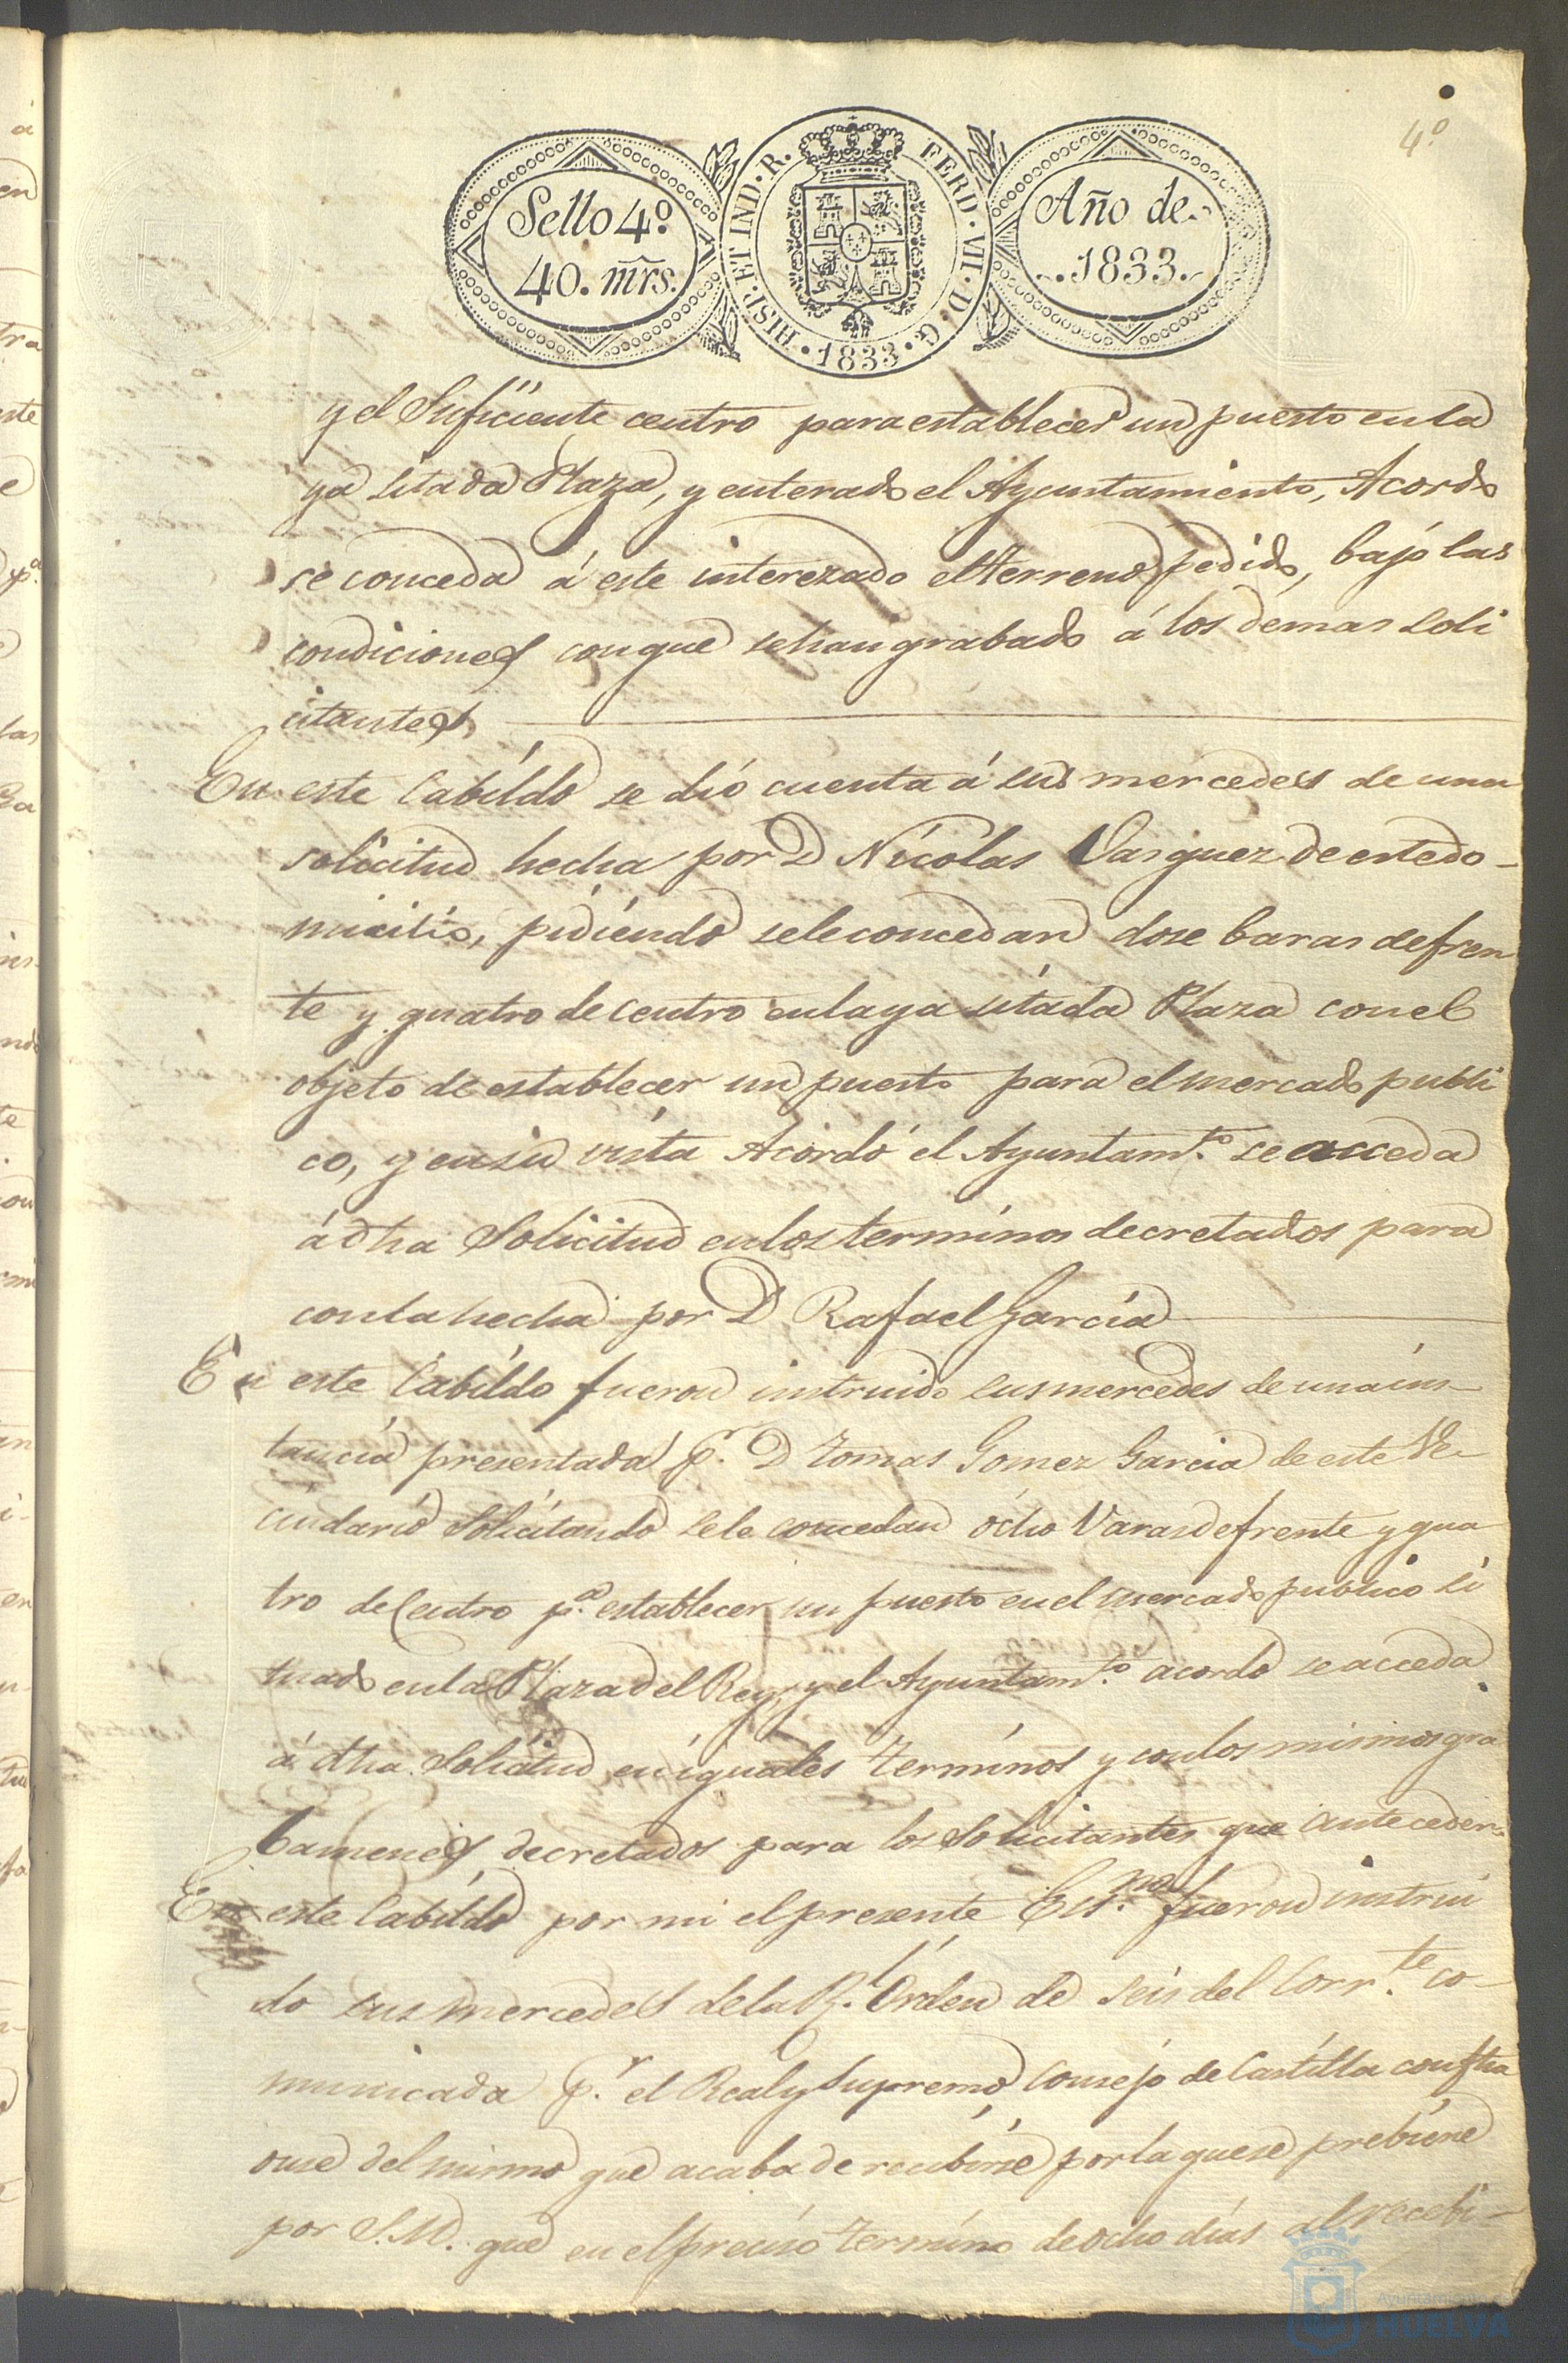 4º
Sello 4º
40. mrs.
HISP. ET IND. R.
FERD. VII. D. G.
1833
Año de
1833.
y el Suficiente centro para establecer un puesto en la
ya sitada Plaza, y enterado el Ayuntamiento, Acordo
se conceda á este interezado el terreno pedido, bajo las
condiciones con que se han grabado á los demas soli
citantes
En este Cabildo se dió cuenta á sus mercedes de una
solicitud hecha por D Nicolas Vasquez de este do-
micilio, pidiendo se le concedan dose baras de fren
te y quatro de centro en la ya sitada Plaza con el
objeto de establecer un puesto para el mercado publi
co, y en su vista Acordó el Ayuntam.to se acceda
á dha Solicitud en los terminos decretados para
con la hecha por D Rafael Garcia
En este Cabildo fueron instruido sus mercedes de una ins-
tancia presentada p.r D Tomas Gomez Garcia de este Ve-
cindario Solicitando se le concedan ócho Varas de frente y qua
tro de Centro p.a establecer un puesto en el mercado publico si
tuado en la Plaza del Rey, y el Ayuntam.to acordo se acceda
á dha. Solicitud en iguales terminos y con los mismos gra
bamenes decretados para los Solicitantes que anteceden
En este Cabildo por mi el presente Ess.no fueron instrui
do sus mercedes de la R.l Orden de seis del Corr.te co-
municada p.r el Real y Supremo Consejo de Castilla con fha
onse del mismo que acaba de recibirse por la que se prebiene
por S.M. que en el preciso termino de ocho dias al recebi-
Ayuntamiento
HUELVA